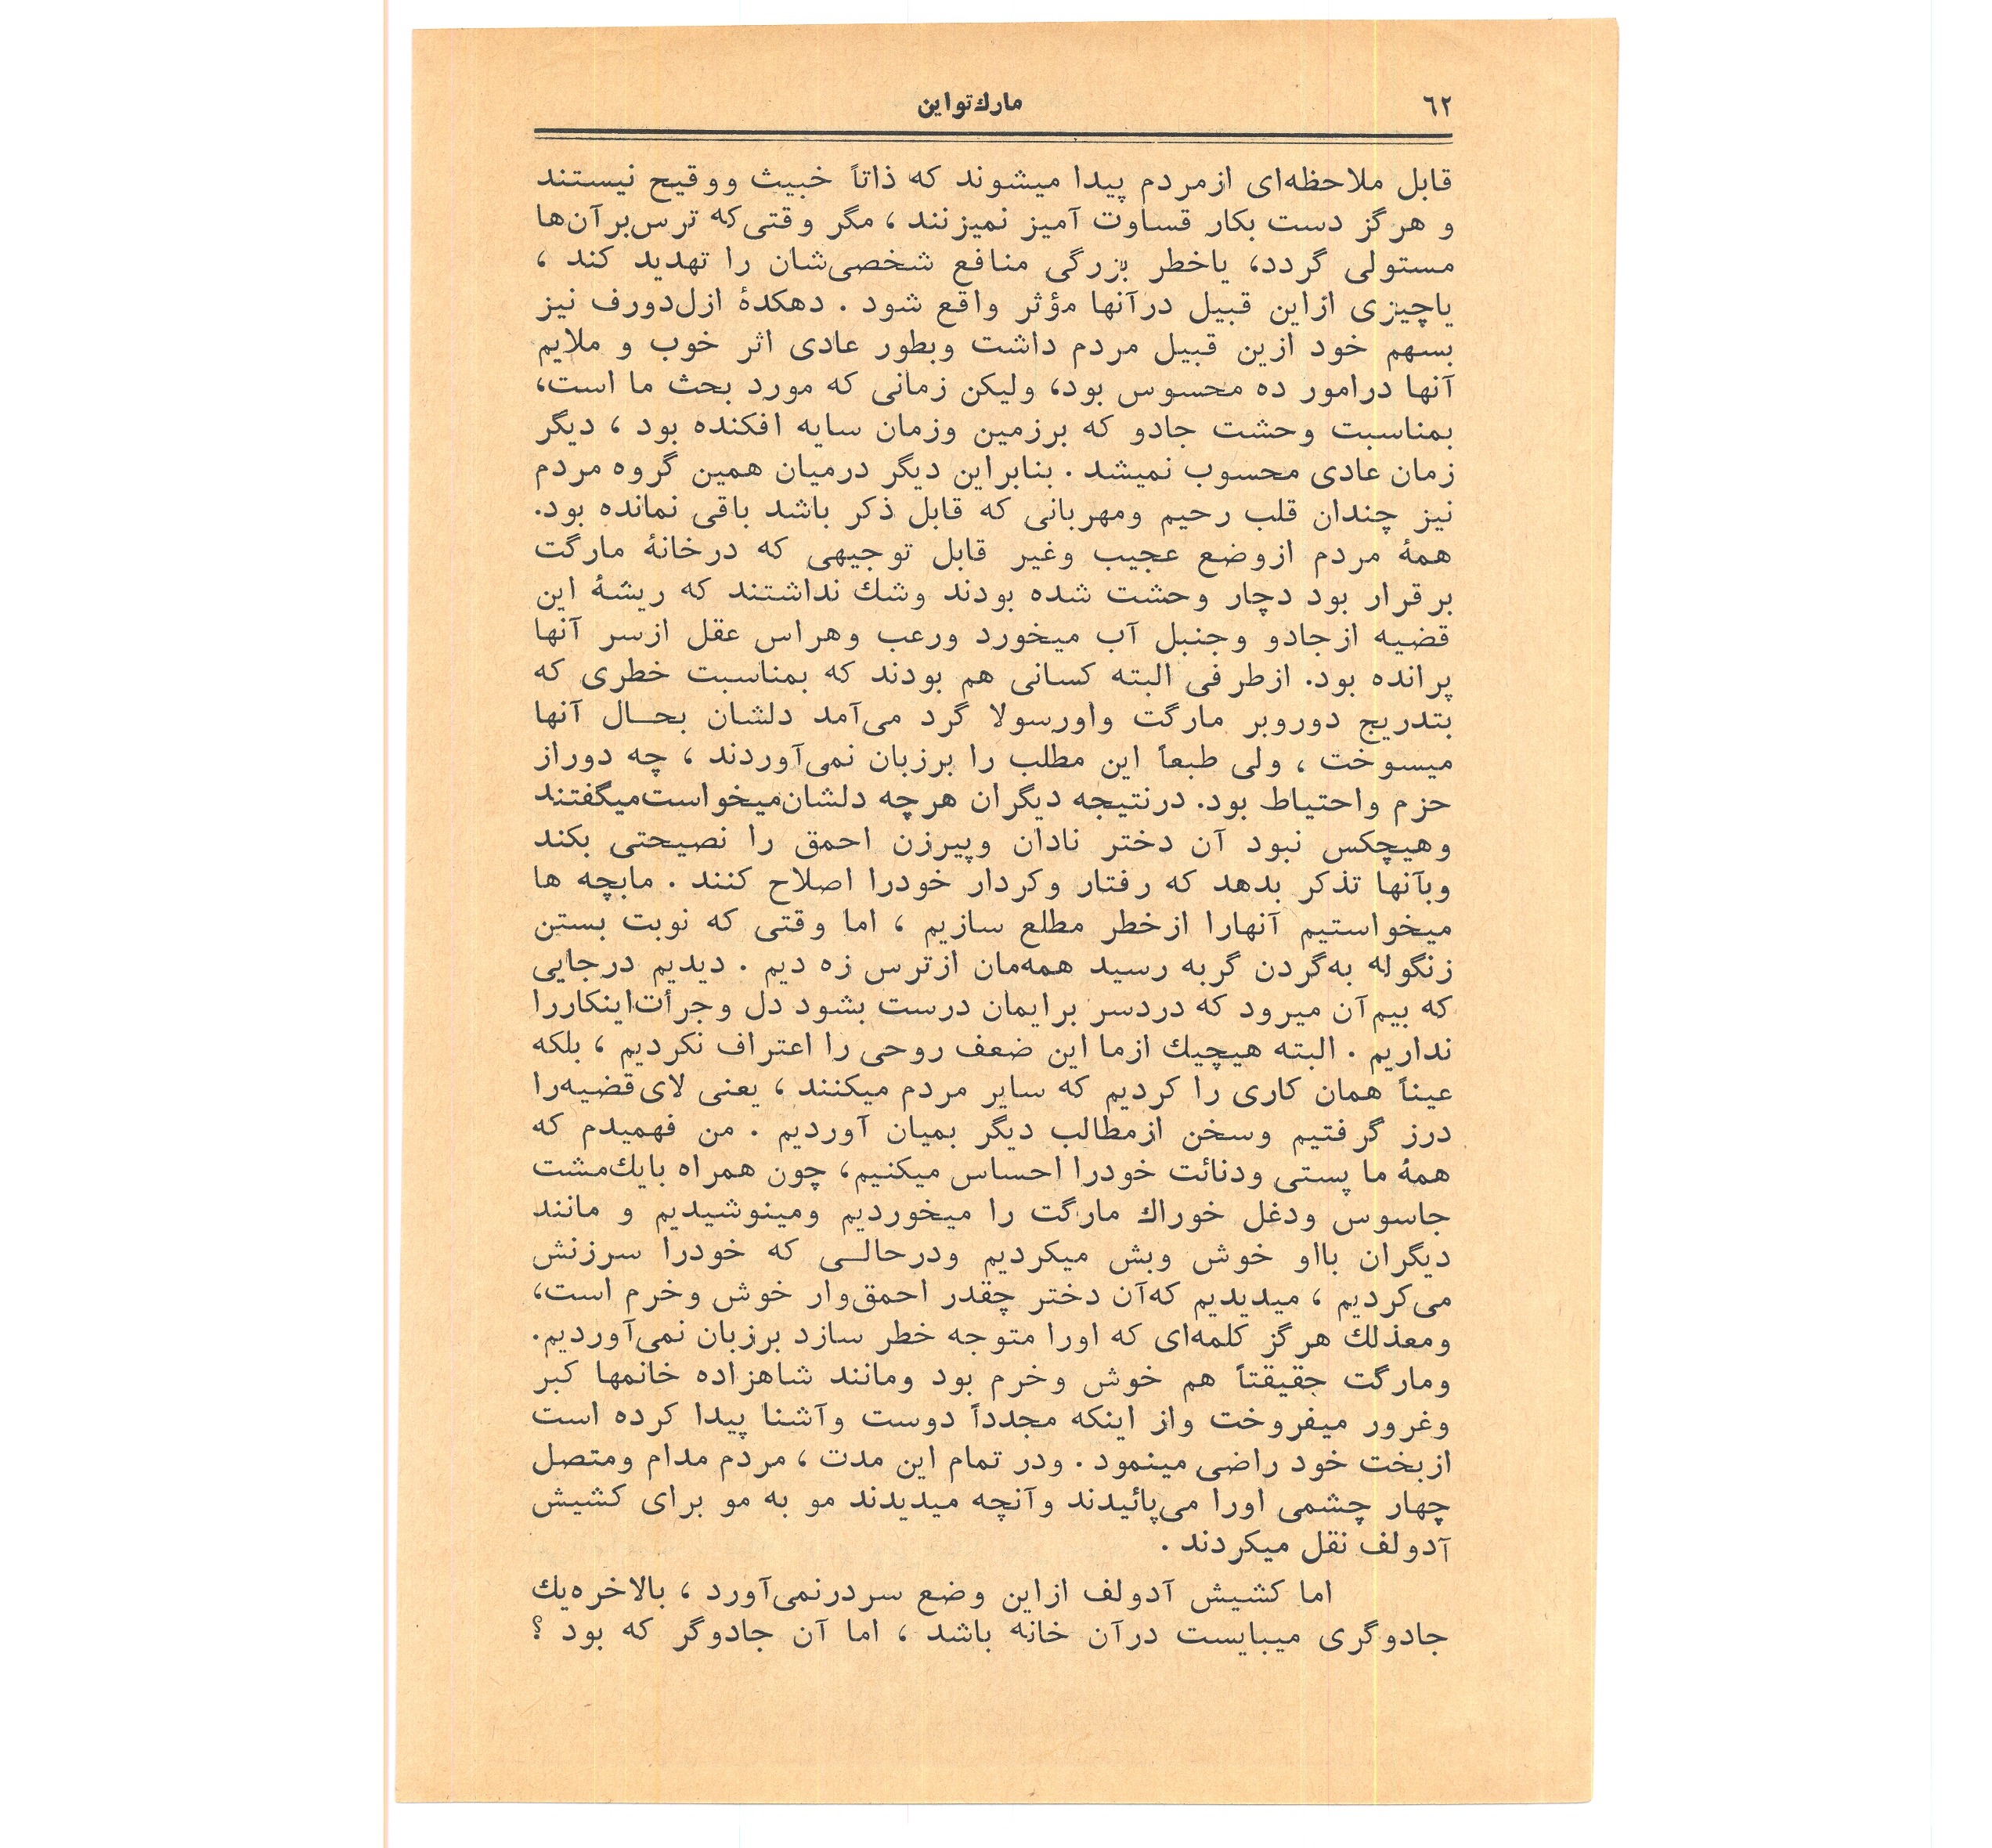 ٦٢
مارك‌تواين
قابل ملاحظه‌ای ازمردم پیدا میشوند که ذاتاً خبیث ووقیح نیستند
و هرگز دست بکار قساوت آمیز نمیزنند ، مگر وقتی‌که ترس‌برآن‌ها
مستولی گردد، یاخطر بزرگی منافع شخصی‌شان را تهدید کند ،
یاچیزی ازاین قبیل درآنها مؤثر واقع شود . دهکدهٔ ازل‌دورف نیز
بسهم خود ازین قبیل مردم داشت وبطور عادی اثر خوب و ملایم
آنها درامور ده محسوس بود، ولیکن زمانی که مورد بحث ما است،
بمناسبت وحشت جادو که برزمین وزمان سایه افکنده بود ، دیگر
زمان عادی محسوب نمیشد . بنابراین دیگر درمیان همین گروه مردم
نیز چندان قلب رحیم ومهربانی که قابل ذکر باشد باقی نمانده بود.
همهٔ مردم ازوضع عجیب وغیر قابل توجیهی که درخانهٔ مارگت
برقرار بود دچار وحشت شده بودند وشك نداشتند که ریشهٔ این
قضیه ازجادو وجنبل آب میخورد ورعب وهراس عقل ازسر آنها
پرانده بود. ازطرفی البته کسانی هم بودند که بمناسبت خطری که
بتدریج دوروبر مارگت واورسولا گرد می‌آمد دلشان بحـال آنها
میسوخت ، ولی طبعاً این مطلب را برزبان نمی‌آوردند ، چه دوراز
حزم واحتیاط بود. درنتیجه دیگران هرچه دلشان‌میخواست‌میگفتند
وهیچکس نبود آن دختر نادان وپیرزن احمق را نصیحتی بکند
وبآنها تذکر بدهد که رفتار وکردار خودرا اصلاح کنند . مابچه ها
میخواستیم آنهارا ازخطر مطلع سازیم ، اما وقتی که نوبت بستن
زنگوله به‌گردن گربه رسید همه‌مان ازترس زه دیم . دیدیم درجایی
که بیم‌آن میرود که دردسر برایمان درست بشود دل وجرأت‌اینکاررا
نداریم . البته هیچیك ازما این ضعف روحی را اعتراف نکردیم ، بلکه
عیناً همان کاری را کردیم که سایر مردم میکنند ، یعنی لای‌قضیه‌را
درز گرفتیم وسخن ازمطالب دیگر بمیان آوردیم . من فهمیدم که
همهٔ ما پستی ودنائت خودرا احساس میکنیم، چون همراه بایك‌مشت
جاسوس ودغل خوراك مارگت را میخوردیم ومینوشیدیم و مانند
دیگران بااو خوش وبش میکردیم ودرحالـی که خودرا سرزنش
می‌کردیم ، میدیدیم که‌آن دختر چقدر احمق‌وار خوش وخرم است،
ومعذلك هرگز کلمه‌ای که اورا متوجه خطر سازد برزبان نمی‌آوردیم.
ومارگت حقیقتاً هم خوش وخرم بود ومانند شاهزاده خانمها کبر
وغرور میفروخت واز اینکه مجدداً دوست وآشنا پیدا کرده است
ازبخت خود راضی مینمود . ودر تمام این مدت ، مردم مدام ومتصل
چهار چشمی اورا می‌پائیدند وآنچه میدیدند مو به مو برای کشیش
آدولف نقل میکردند .
اما کشیش آدولف ازاین وضع سردرنمی‌آورد ، بالاخره‌یك
جادوگری میبایست درآن خانه باشد ، اما آن جادوگر که بود ؟